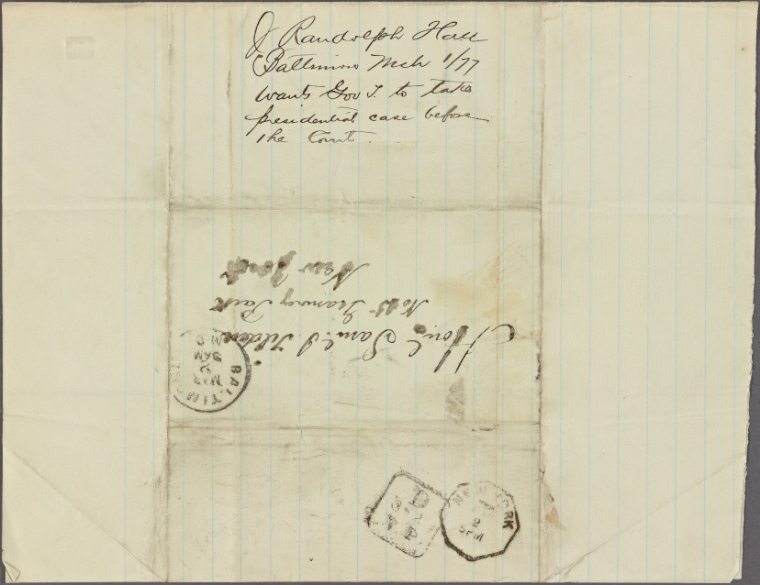 J Randolph Hall
Baltimore Mch 1/77
wants Gov T. to take
presidential case before
the Court.
Hon. Saml. J. Tilden
No 15 Gramercy Park
New York
BALTIM
MAR
2
8AM
NEW YORK
2
5PM